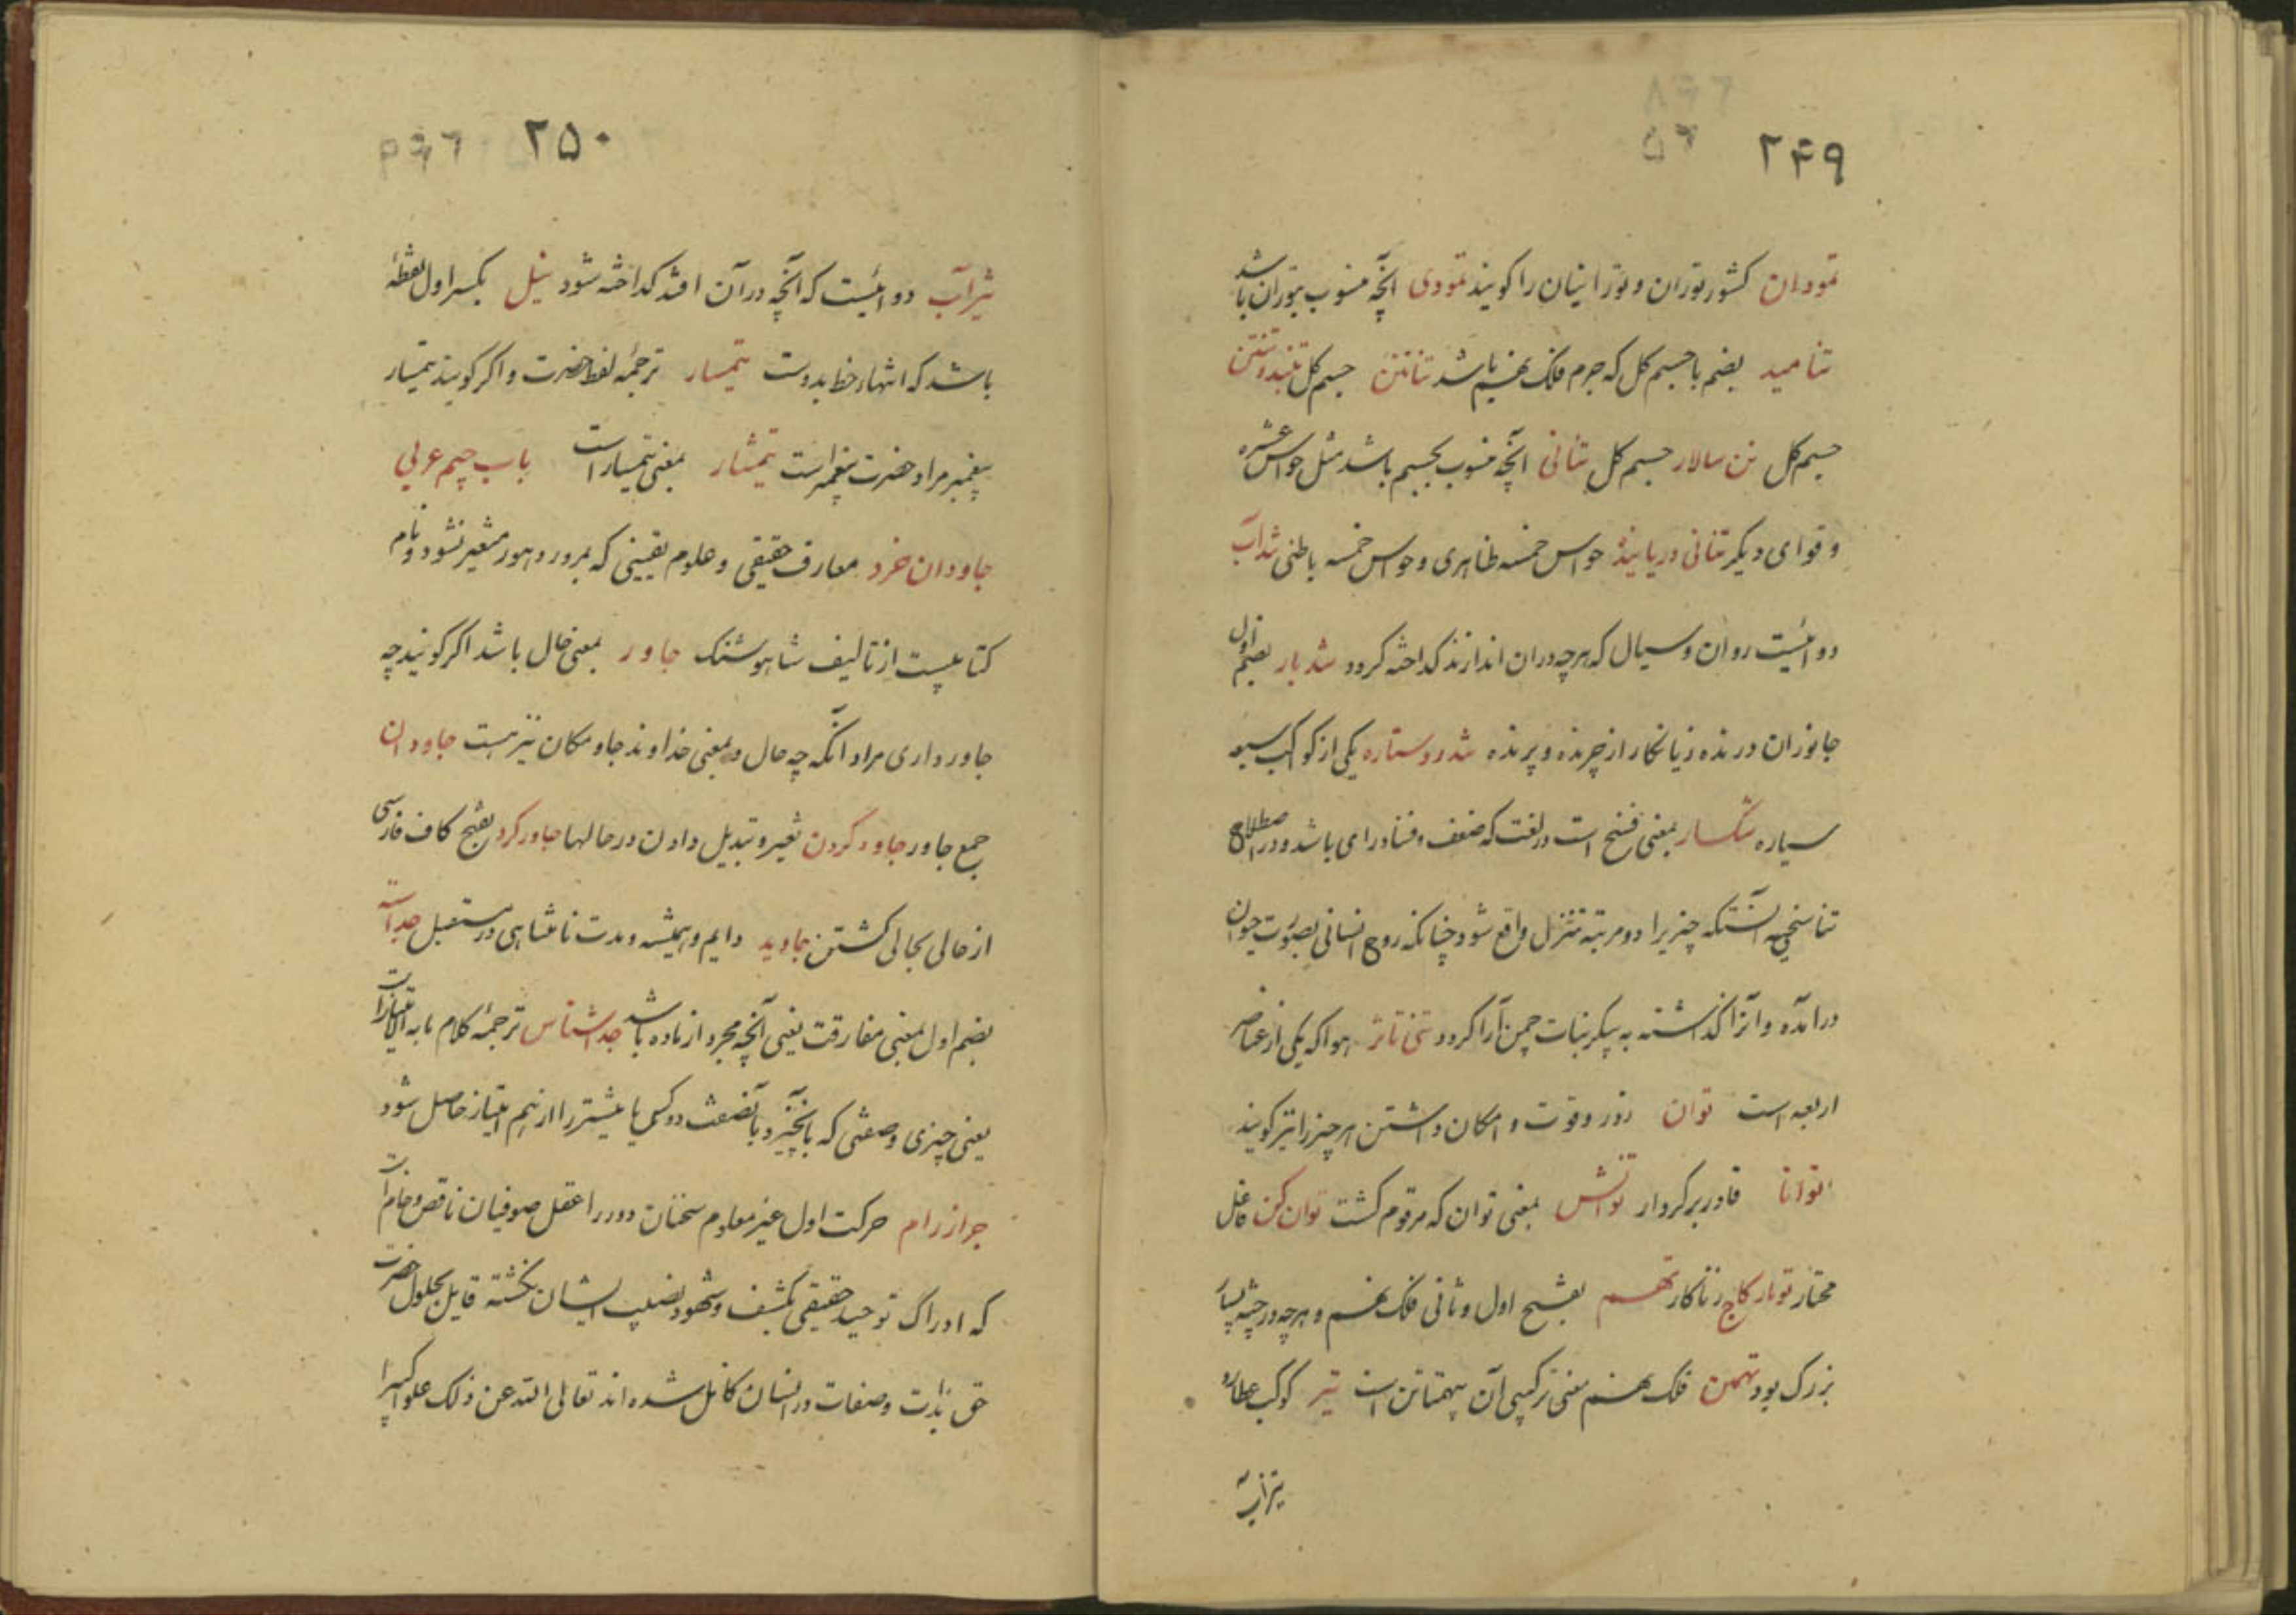 ۲۴۹
تودان کشور توران و تورانیان را کویند تودی انچه منسوب بتوران باشد
تنامید بضم با جسم کل که جرم فلک نهم باشد تناتن جسم کل تنبد و تنتن
جسم کل تن سالار جسم کل تنانی انچه منسوب بجسم باشد مثل حواس عشره
و قوای دیکر تنانی دریابنده حواس خمسه ظاهری و حواس خمسه باطنی تنداب
دوائیست روان و سیال که هرچه دران اندازند کداخته کردد تندبار بضم اول
جانوران درنده و زیانکار از چرنده و پرنده تندرو ستاره یکی از کواکب سبعه
سیاره تنکسار بمعنی فسخ است در لغت که ضعف و فساد رای باشد و در اصطلاح
تناسخیه آنستکه چیزیرا دو مرتبه تنزل واقع شود چنانکه روح انسانی بصورت حیوان
درآمده و آنرا کذاشته به پیکر نبات چمن آرا کردد هوا که یکی از عناصر
اربعه است توان زور و قوت و امکان داشتن هر چیز را نیز کویند
توانا قادر بر کردار توانش بمعنی توان که مرقوم کشت توان کن فاعل
مختار تونار کاج زناکار تهم بفتح اول و ثانی فلک نهم و هرچه در جثه بسیار
بزرک بود تهمتن فلک نهم معنی ترکیبی آن بیهمتا تن است تیر کوکب عطارد
تیزاب
۲۵۰
تیزاب دوائیست که آنچه در آن افتد کداخته شود تیل بکسر اول نقطهٔ
باشد که انتهاء خط بدوست تیمسار ترجمهٔ لفظ حضرت و اکر کویند تیمسار
پیغمبر مراد حضرت پیغمبر است تیمشار بمعنی تیمسار است باب جیم عربی
جاودان خرد معارف حقیقی و علوم یقینی که بمرور دهور متغیر نشود و نام
کتابیست از تالیف شاه هوشنک جاور بمعنی حال باشد اکر کویند چه
جاور داری مراد آنکه چه حال و بمعنی خداوند جا و مکان نیز هست جاوران
جمع جاور جاور کردن تغیر و تبدیل دادن در حالها جاور کرد بفتح کاف فارسی
از حالی بحالی کشتن جاوید دایم و همیشه و مدت نامتناهی در مستقبل جداسه
بضم اول بمعنی مفارقت یعنی آنچه مجرد از ماده باشد جدا شناس ترجمهٔ کلام ما به الامتیاز است
یعنی چیزی و صفتی که بآنچیز و بآنصفت دو کس یا بیشتر را از هم امتیاز حاصل شود
حرکت اول غیر معلوم سخنان دور را عقل صوفیان ناقص و خام است
که ادراک توحید حقیقی بکشف و شهود نصیب ایشان نکشته قایل بحلول حضرت
حق بذات و صفات در انسان کامل شده اند تعالی الله عن ذلک علوا کبیرا